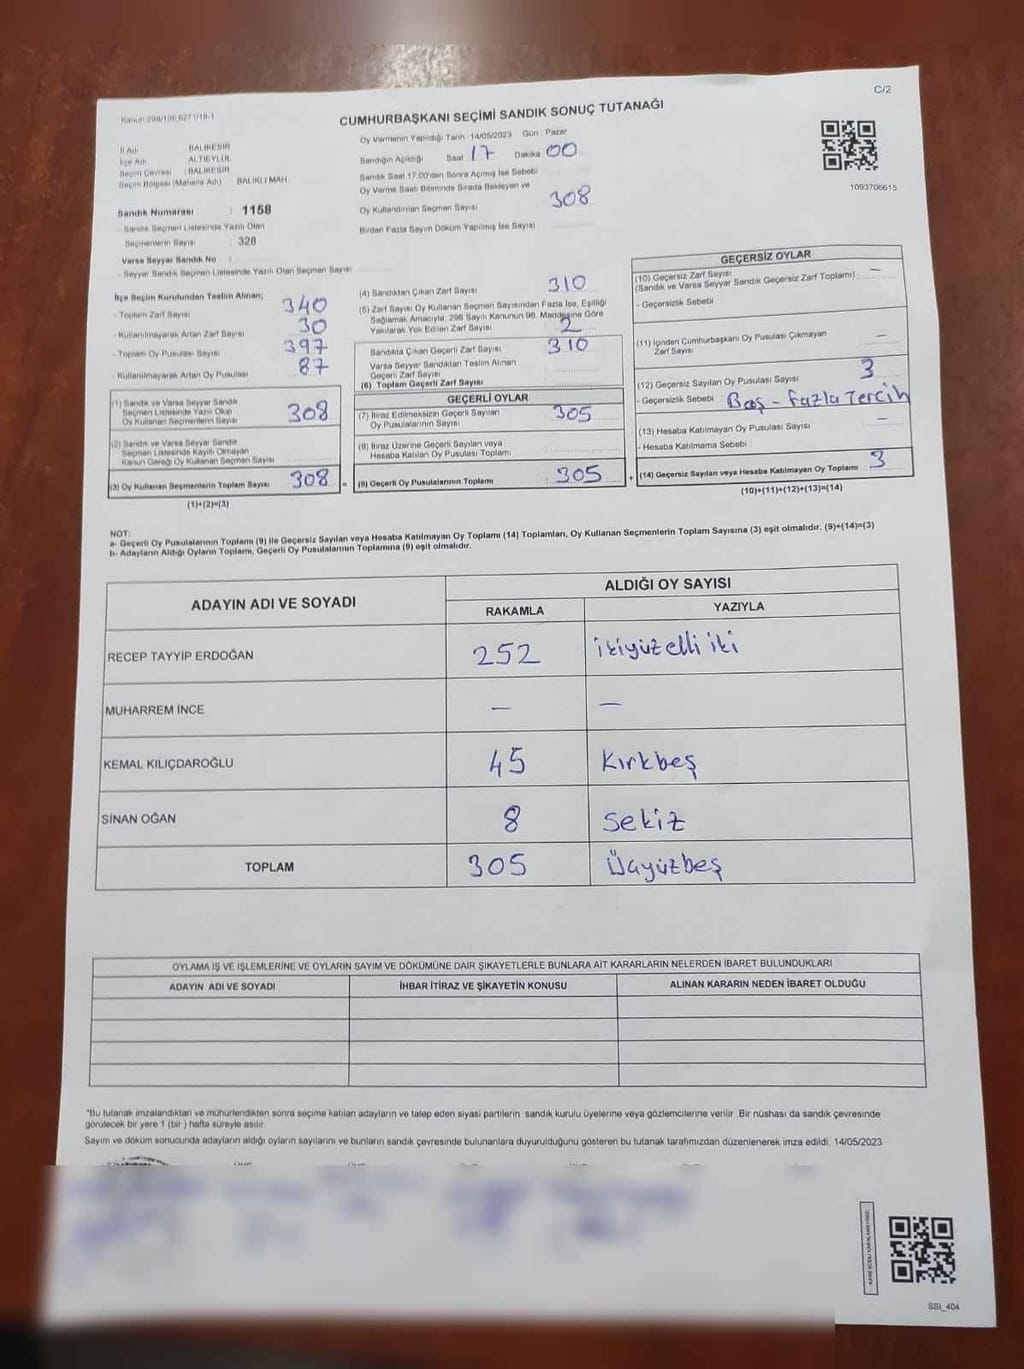 C/2
Kanun 298/106,6271/18-1
CUMHURBAŞKANI SEÇİMİ SANDIK SONUÇ TUTANAĞI
1093706615
İl Adı : BALIKESİR
İlçe Adı : ALTIEYLÜL
Seçim Çevresi : BALIKESİR
Seçim Bölgesi (Mahalle Adı) BALIKLI MAH.
Sandık Numarası : 1158
- Sandık Seçmen Listesinde Yazılı Olan
Seçmenlerin Sayısı : 328
Varsa Seyyar Sandık No :
- Seyyar Sandık Seçmen Listesinde Yazılı Olan Seçmen Sayısı
Oy Vermenin Yapıldığı Tarih : 14/05/2023 Gün : Pazar
Sandığın Açıldığı Saat 17 Dakika 00
Sandık Saat 17:00'den Sonra Açılmış İse Sebebi
Oy Verme Saati Bitiminde Sırada Bekleyen ve
Oy Kullandırılan Seçmen Sayısı 308
Birden Fazla Sayım Döküm Yapılmış İse Sayısı
İlçe Seçim Kurulundan Teslim Alınan;
- Toplam Zarf Sayısı 340
- Kullanılmayarak Artan Zarf Sayısı 30
- Toplam Oy Pusulası Sayısı 397
- Kullanılmayarak Artan Oy Pusulası 87
(1) Sandık ve Varsa Seyyar Sandık
Seçmen Listesinde Yazılı Olup
Oy Kullanan Seçmenlerin Sayısı 308
(2) Sandık ve Varsa Seyyar Sandık
Seçmen Listesinde Kayıtlı Olmayan
Kanun Gereği Oy Kullanan Seçmen Sayısı
(3) Oy Kullanan Seçmenlerin Toplam Sayısı 308 =
(1)+(2)=(3)
(4) Sandıktan Çıkan Zarf Sayısı 310
(5) Zarf Sayısı Oy Kullanan Seçmen Sayısından Fazla İse, Eşitliği
Sağlamak Amacıyla, 298 Sayılı Kanunun 98. Maddesine Göre
Yakılarak Yok Edilen Zarf Sayısı 2
Sandıkta Çıkan Geçerli Zarf Sayısı 310
Varsa Seyyar Sandıktan Teslim Alınan
Geçerli Zarf Sayısı
(6) Toplam Geçerli Zarf Sayısı
GEÇERLİ OYLAR
(7) İtiraz Edilmeksizin Geçerli Sayılan
Oy Pusulalarının Sayısı 305
(8) İtiraz Üzerine Geçerli Sayılan veya
Hesaba Katılan Oy Pusulası Toplamı
(9) Geçerli Oy Pusulalarının Toplamı : 305 +
GEÇERSİZ OYLAR
(10) Geçersiz Zarf Sayısı –
(Sandık ve Varsa Seyyar Sandık Geçersiz Zarf Toplamı)
- Geçersizlik Sebebi
(11) İçinden Cumhurbaşkanı Oy Pusulası Çıkmayan
Zarf Sayısı –
(12) Geçersiz Sayılan Oy Pusulası Sayısı 3
- Geçersizlik Sebebi Boş - Fazla Tercih
(13) Hesaba Katılmayan Oy Pusulası Sayısı –
- Hesaba Katılmama Sebebi
(14) Geçersiz Sayılan veya Hesaba Katılmayan Oy Toplamı 3
(10)+(11)+(12)+(13)=(14)
NOT:
a- Geçerli Oy Pusulalarının Toplamı (9) ile Geçersiz Sayılan veya Hesaba Katılmayan Oy Toplamı (14) Toplamları, Oy Kullanan Seçmenlerin Toplam Sayısına (3) eşit olmalıdır. (9)+(14)=(3)
b- Adayların Aldığı Oyların Toplamı, Geçerli Oy Pusulalarının Toplamına (9) eşit olmalıdır.
ADAYIN ADI VE SOYADI
ALDIĞI OY SAYISI
RAKAMLA YAZIYLA
RECEP TAYYİP ERDOĞAN 252 ikiyüzelli iki
MUHARREM İNCE – –
KEMAL KILIÇDAROĞLU 45 Kırkbeş
SİNAN OĞAN 8 Sekiz
TOPLAM 305 Üçyüzbeş
OYLAMA İŞ VE İŞLEMLERİNE VE OYLARIN SAYIM VE DÖKÜMÜNE DAİR ŞİKAYETLERLE BUNLARA AİT KARARLARIN NELERDEN İBARET BULUNDUKLARI
ADAYIN ADI VE SOYADI İHBAR İTİRAZ VE ŞİKAYETİN KONUSU ALINAN KARARIN NEDEN İBARET OLDUĞU
*Bu tutanak imzalandıktan ve mühürlendikten sonra seçime katılan adayların ve talep eden siyasi partilerin sandık kurulu üyelerine veya gözlemcilerine verilir. Bir nüshası da sandık çevresinde
görülecek bir yere 1 (bir ) hafta süreyle asılır.
Sayım ve döküm sonucunda adayların aldığı oyların sayılarını ve bunların sandık çevresinde bulunanlara duyurulduğunu gösteren bu tutanak tarafımızdan düzenlenerek imza edildi. 14/05/2023
SSI_404